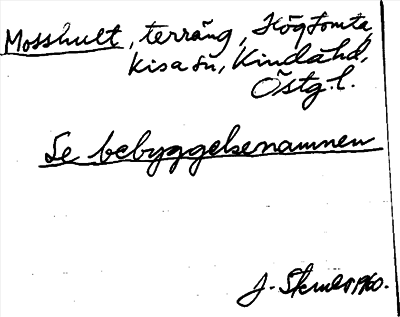 Mosshult, terräng, Högtomta,
Kisa sn, Kinda hd,
Östg.l.
Se bebyggelsenamnen
J. 1960.